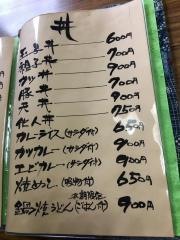 丼
玉丼 600円
親子丼 700円
カツ丼 900円
豚丼 700円
天丼 900円
他人丼 750円
カレーライス(サンダ付) 650円
カツカレー(サンダ付) 900円
エビカレー(サンダ付) 900円
焼めし(吸物付) 650円
鍋焼うどん(ごはん付) 900円